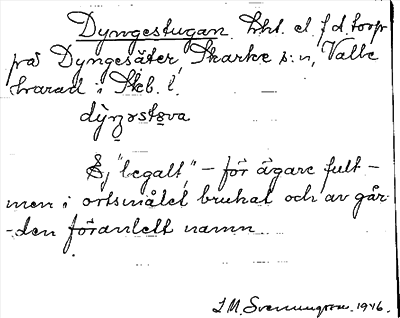 Dyngestugan lht. el. f.d. torp
på Dyngesäter, Skarke s:n, Valle
härad i Skb. l.
dyŋɔstɷva
Ej "legalt," – för ägare fullt –
men i ortsmålet brukat och av går-
-den föranlett namn
J.M. Svenungsson. 1946.